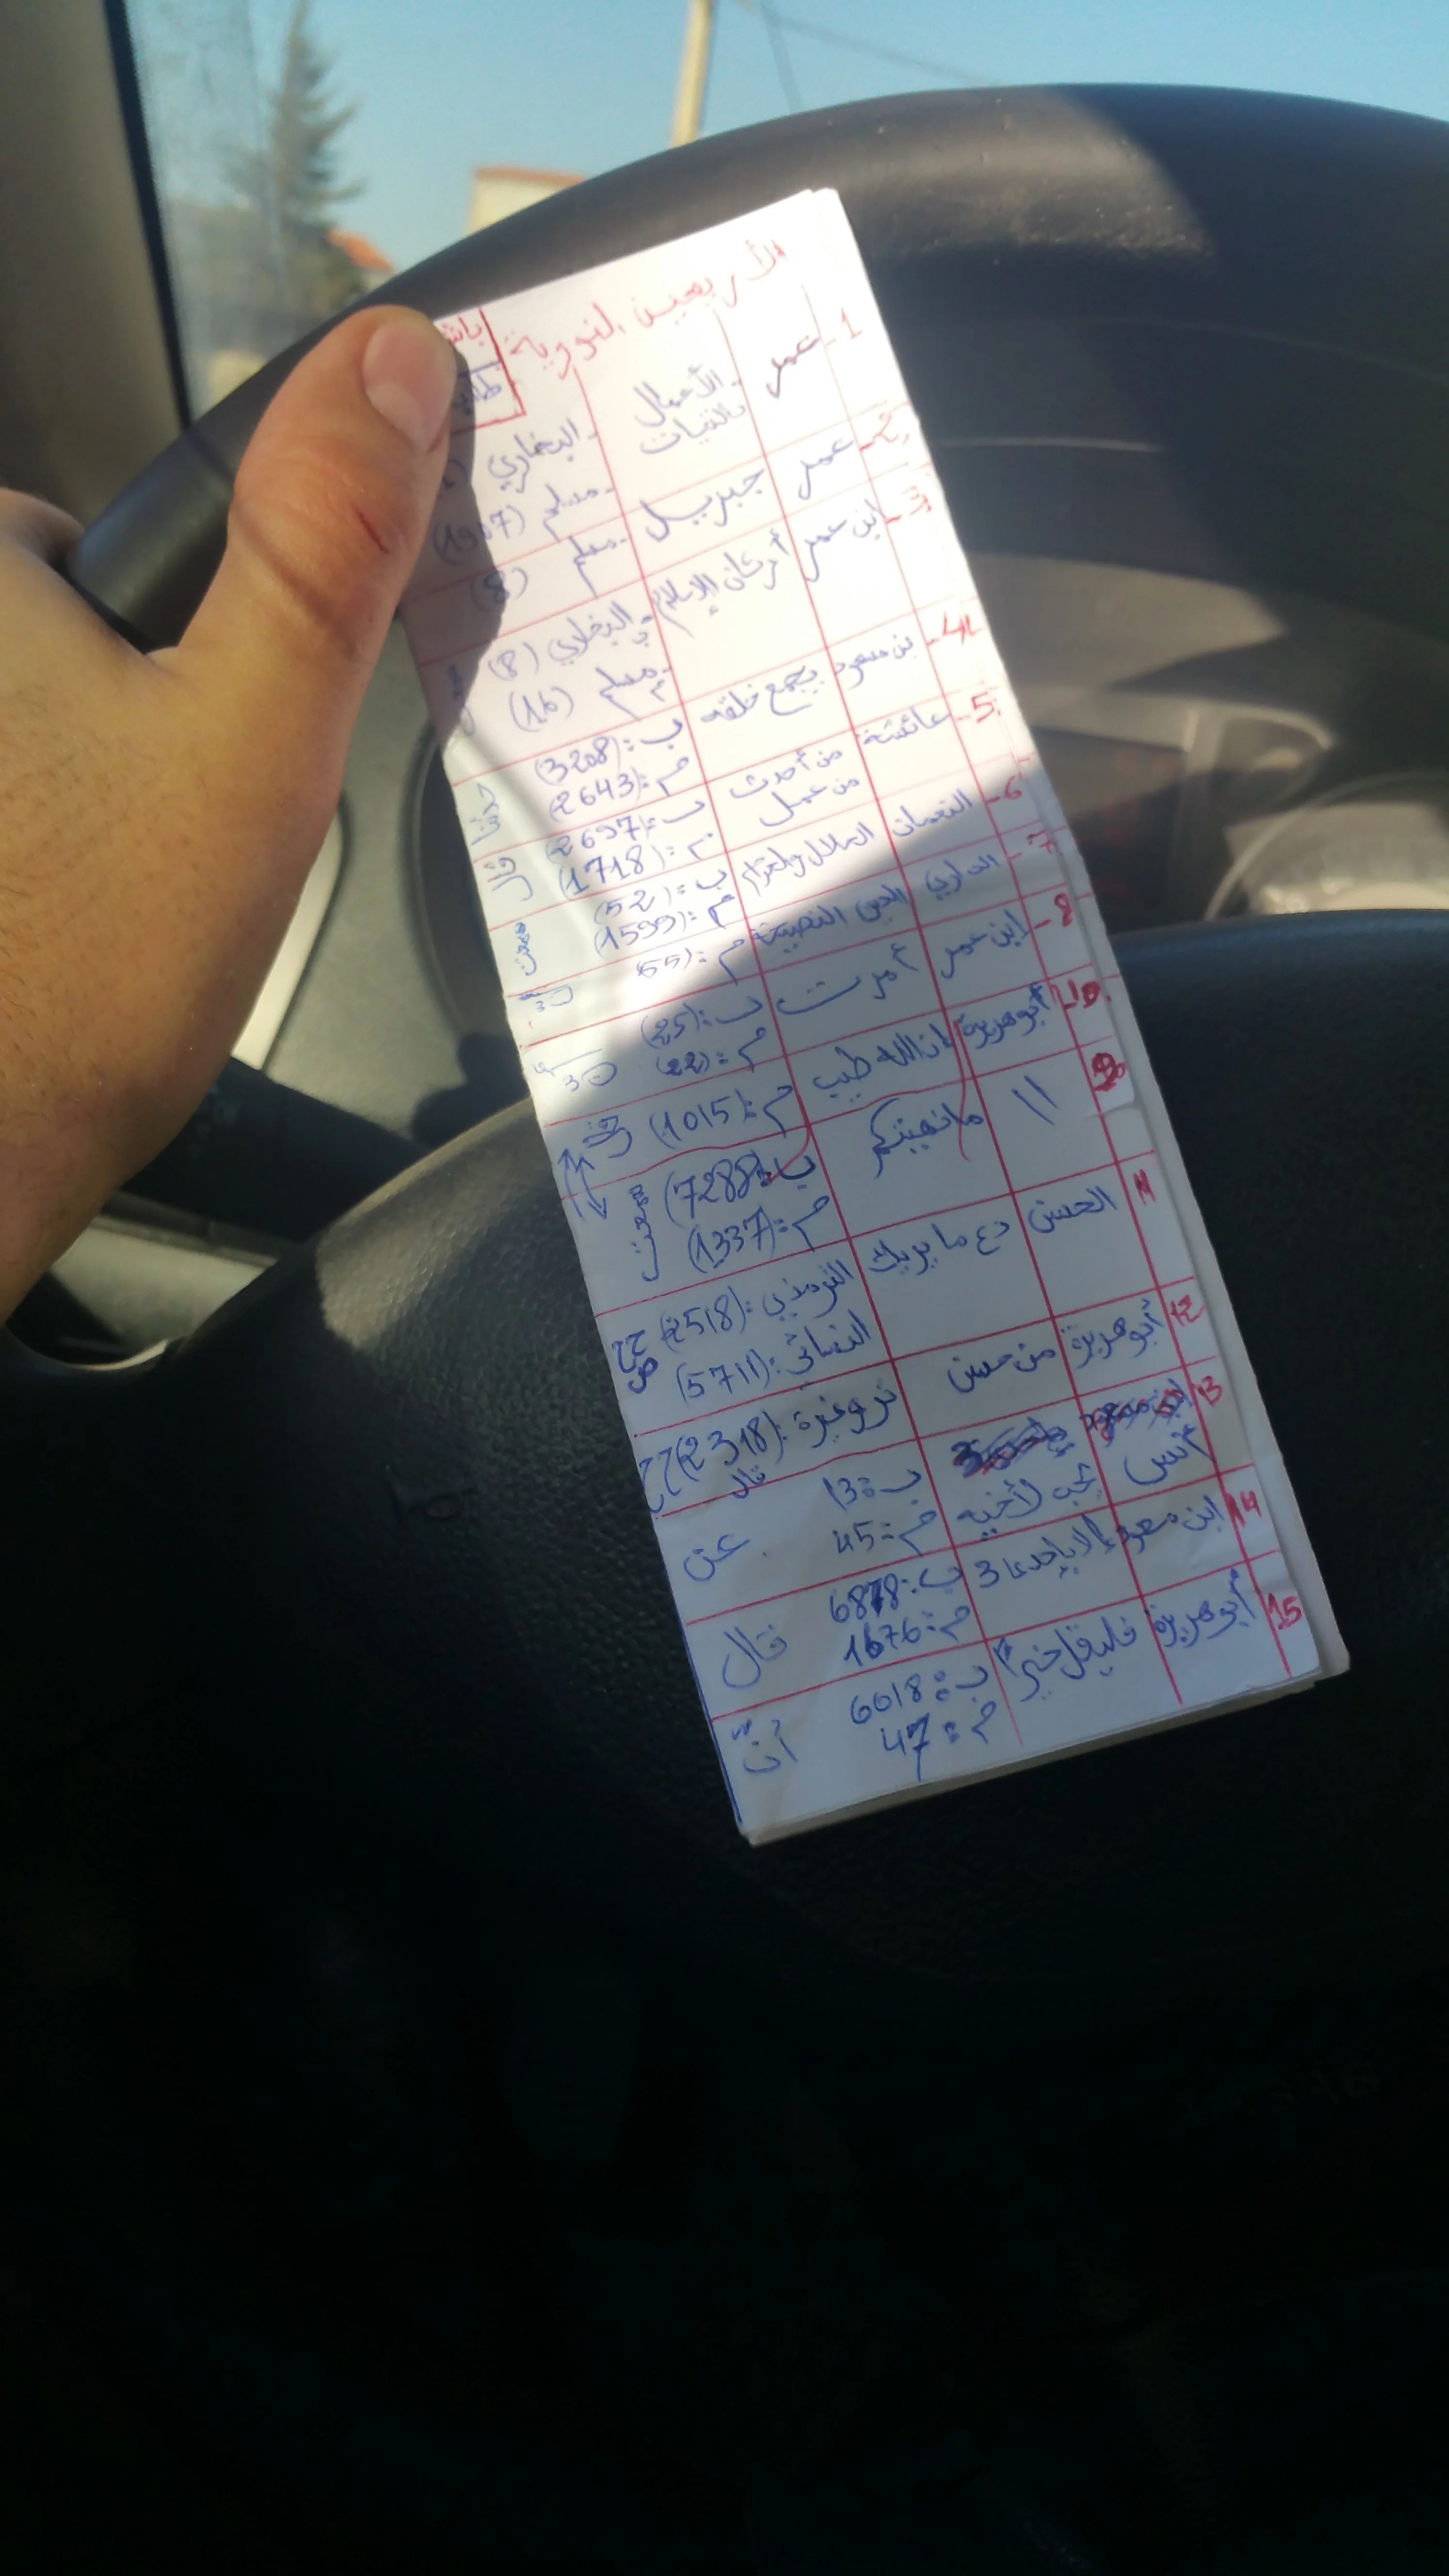 الأربعين النووية
1- عمر - الأعمال بالنيات - البخاري
- مسلم (1907)
2- عمر جبريل - مسلم (8)
3- ابن عمر أركان الإسلام - البخاري (8)
- مسلم (16)
4- بن مسعود يجمع خلقه ب: (3208)
م: (2643)
5- عائشة من أحدث ب: (2697)
من عمل م: (1718)
6- النعمان الحلال والحرام ب: (52)
م: (1599)
7- الداري الدين النصيحة م: (55)
8- ابن عمر أمرت ب: (25)
م: (22)
10 أبو هريرة إن الله طيب م: (1015)
9 // ما نهيتكم ب: (7288)
م: (1337)
11 الحسن دع ما يريبك الترمذي: (2518)
النسائي: (5711)
12 أبو هريرة من حسن تر وغيره: (2318)
13 أنس يحب لأخيه ب: 13 قال
م: 45 عن
14 ابن مسعود إلا بإحدى 3 ب: 6878
م: 1676 قال
15 أبو هريرة فليقل خيرا ب: 6018
م: 47 أنّ